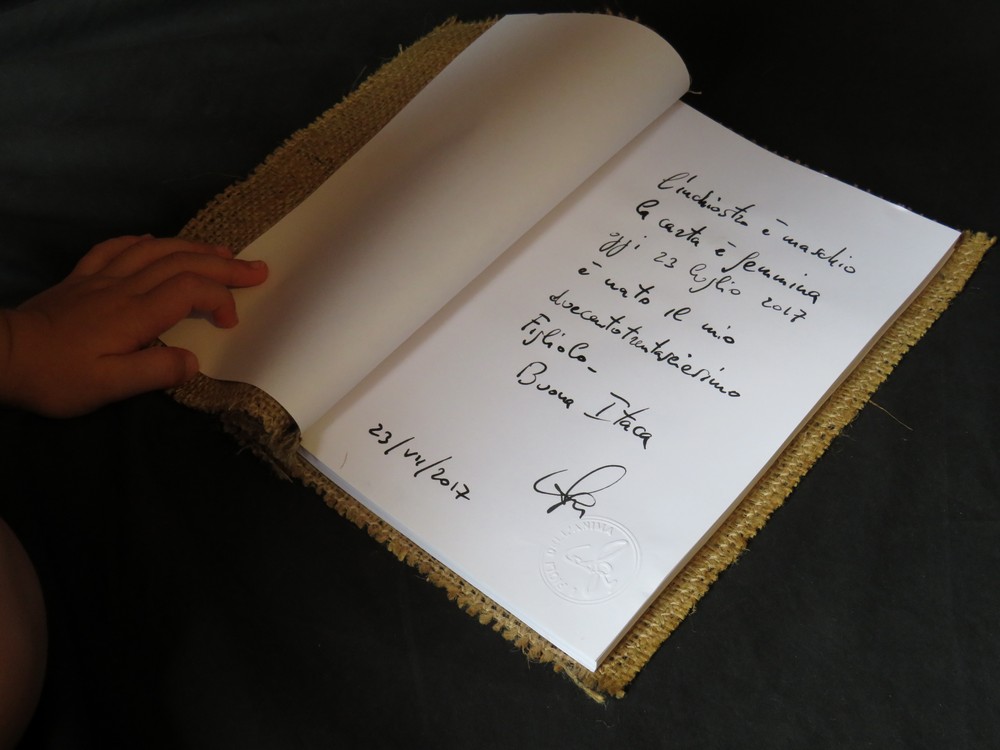 l'inchiostro è maschio
la carta è femmina
oggi 23 luglio 2017
è nato il mio
duecentotrentaseiesimo
Figliolo-
Buona Itaca
23/VII/2017